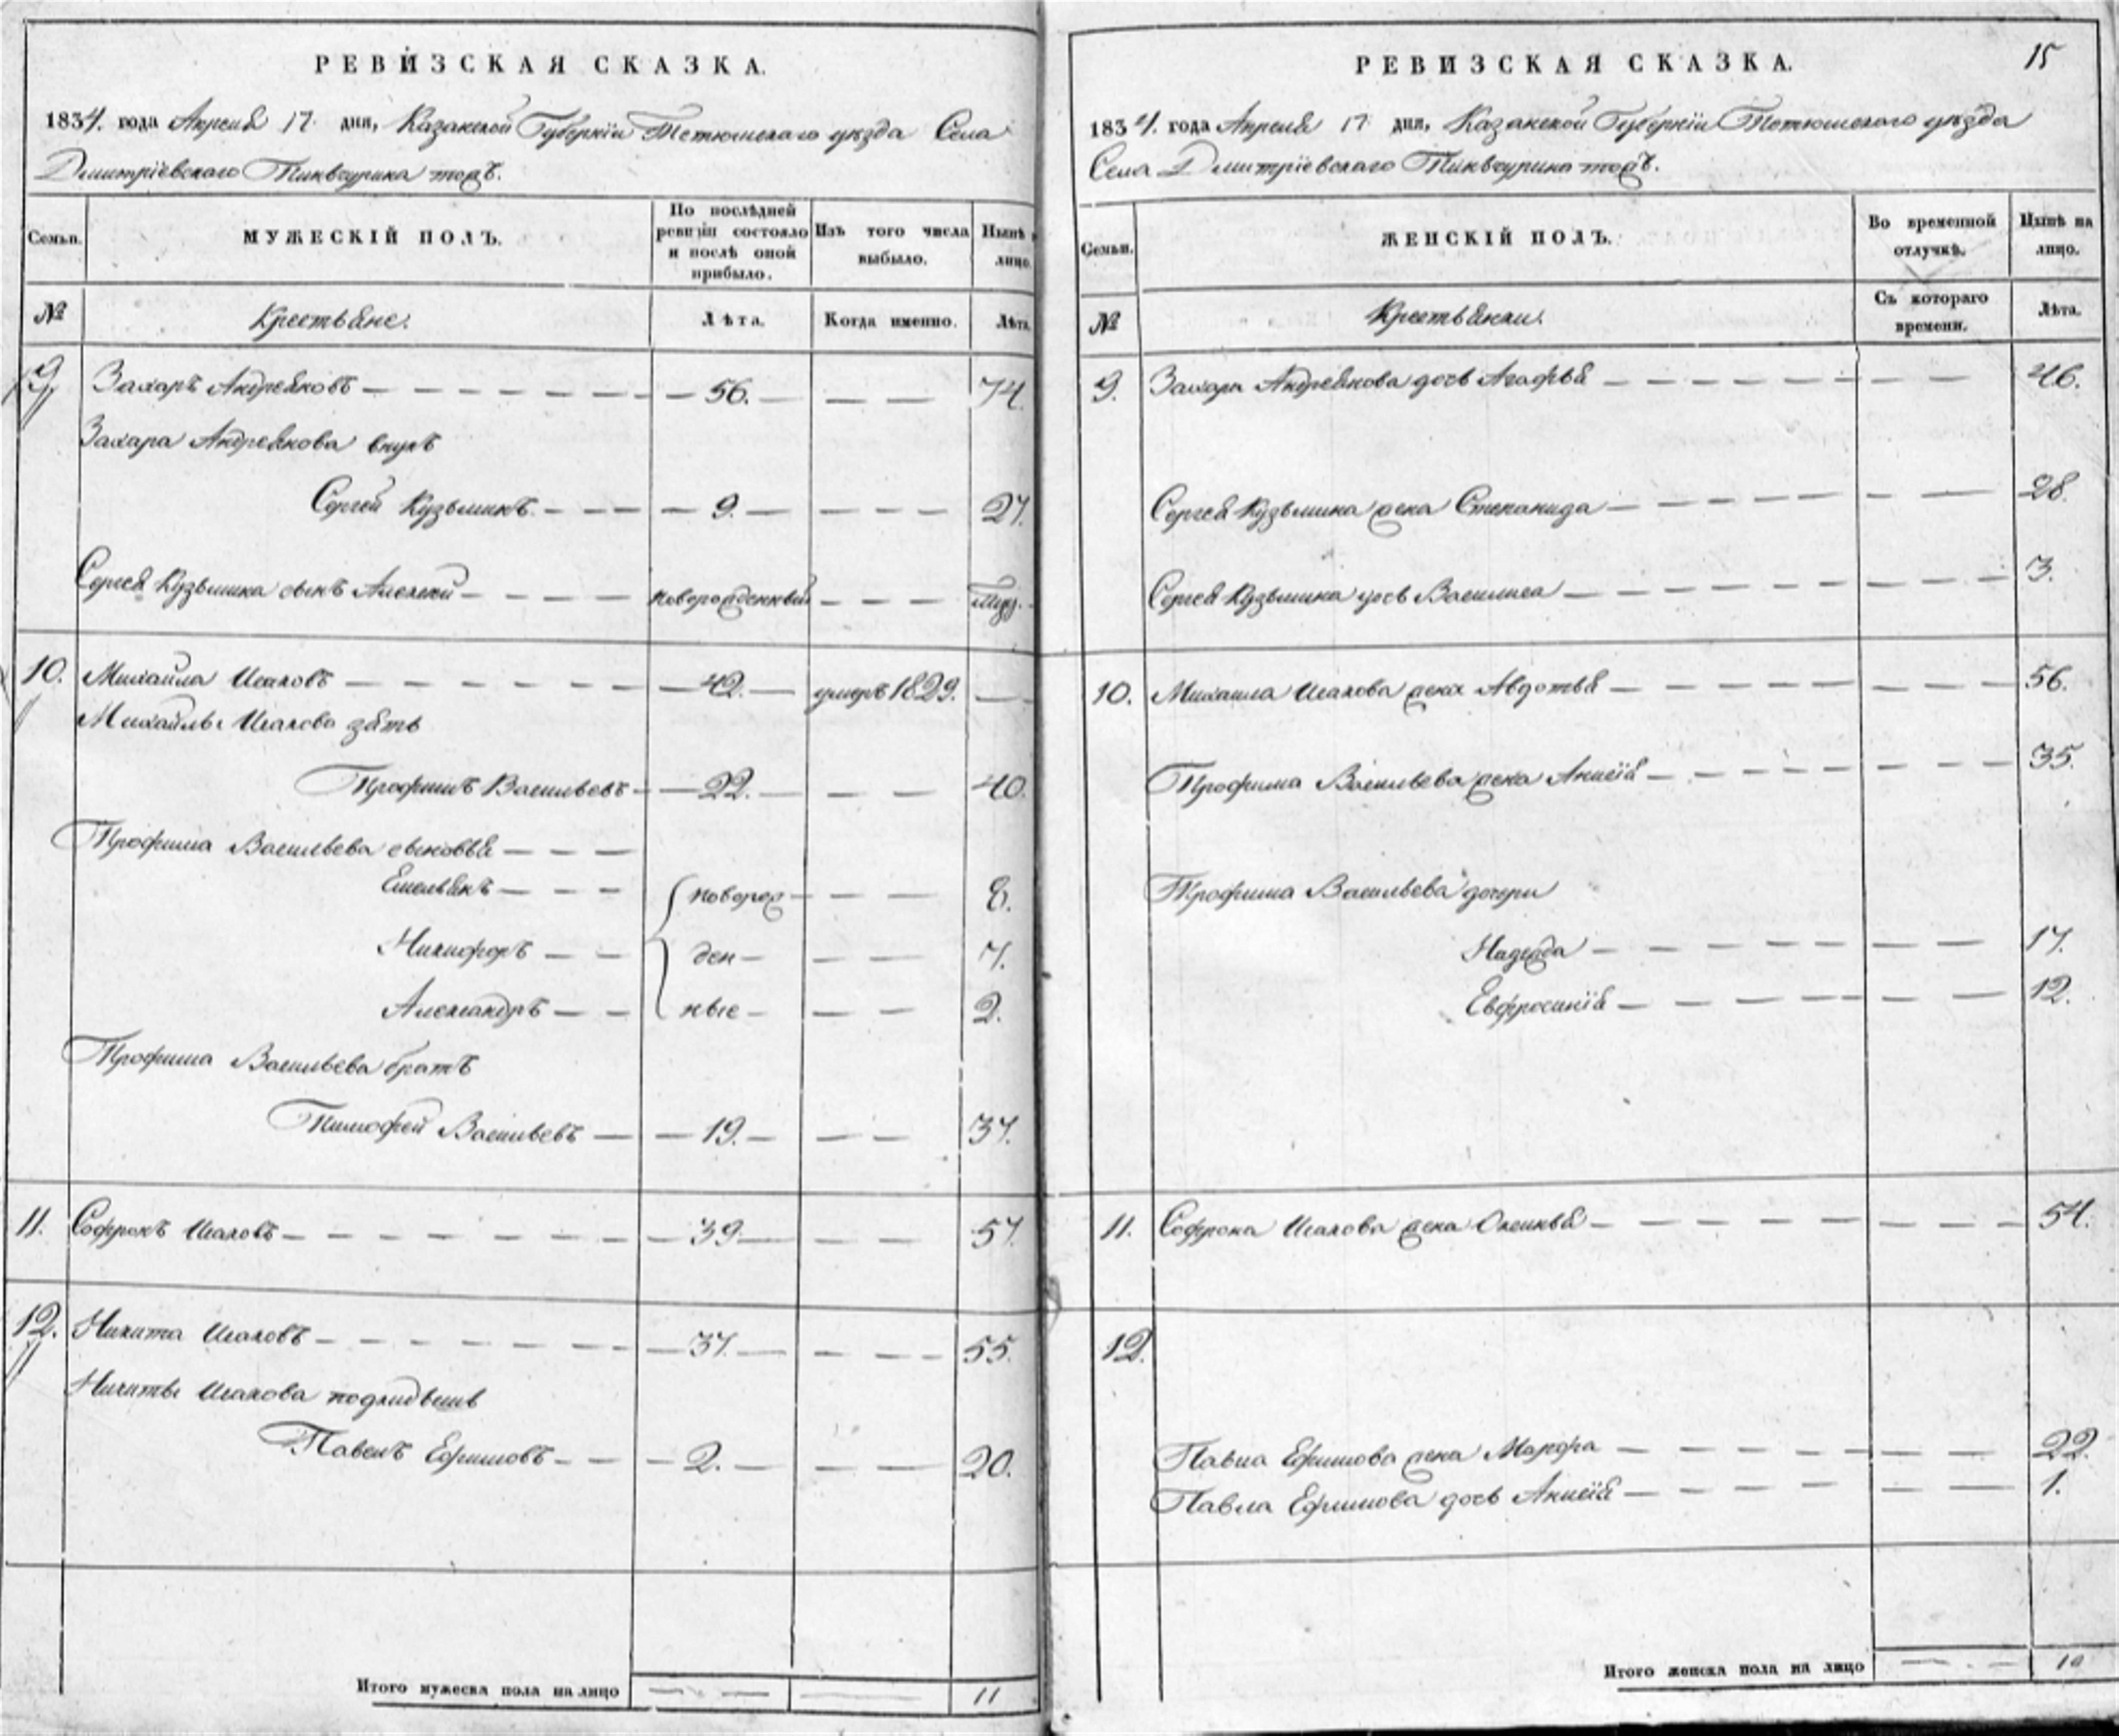 РЕВИЗСКАЯ СКАЗКА.
1834. года Апреля 17. дня, Казанской Губернiи Тетюшскаго уѣзда Села
Дмитрiевскаго тожъ.
Семьи.
МУЖЕСКІЙ ПОЛЪ.
По послѣдней ревизіи состояло и послѣ оной прибыло.
Изъ того числа выбыло.
Нынѣ лицо.
№
Крестьяне.
Лѣта.
Когда именно.
Лѣта.
9
Захаръ Андреяновъ — 56. — 74
Захара Андреянова внукъ
Сергей Кузьминъ — 9. — 27.
Сергея Кузьмина сынъ Алексей — новорожденный —
10. Михайла Исаковъ — 42. — умеръ 1829. —
Михайлы Исакова зять
Трофимъ Васильевъ — 22. — 40.
Трофима Васильева сыновья —
Емельянъ — новорож — 8.
Никифоръ — ден — 7.
Александръ — ные — 2.
Трофима Васильева братъ
Тимофей Васильевъ — 19. — 37.
11. Софронъ Исаковъ — 39. — 57.
12. Никита Исаковъ — 37. — 55.
Никиты Исакова подкидышь
Павелъ Ефимовъ — 2. — 20.
Итого мужеска пола на лицо — 11
РЕВИЗСКАЯ СКАЗКА.
15
1834. года Апреля 17 дня, Казанской Губернiи Тетюшскаго уѣзда
Села Дмитрiевскаго тожъ.
Семьи.
ЖЕНСКІЙ ПОЛЪ.
Во временной отлучкѣ.
Нынѣ на лицо.
№
Крестьянки.
Съ котораго времени.
Лѣта.
9. Захара Андреянова дочь Агафья — 46.
Сергея Кузьмина жена Степанида — 28.
Сергея Кузьмина дочь Василиса — 3.
10. Михаила Исакова жена Авдотья — 56.
Трофима Васильева жена Анисiя — 35.
Трофима Васильева дочери
Надежда — 17.
Евфросинiя — 12.
11. Софрона Исакова жена Оксинья — 54.
12.
Павла Ефимова жена Марфа — 22.
Павла Ефимова дочь Анисiя — 1.
Итого женска пола на лицо — 10